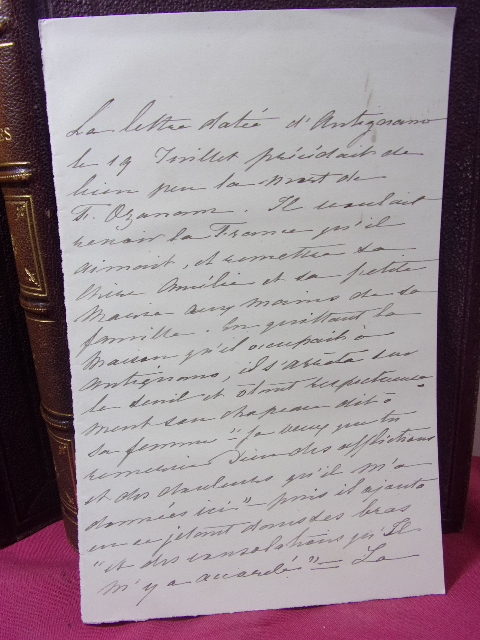 RS
La lettre datée d'Antignano
le 19 Juillet précédait de
bien peu la mort de
F. Ozanam. Il voulait
revoir la France qu'il
aimait, et remettre sa
chère Amélie et sa petite
Marie aux mains de sa
famille. En quittant la
Maison qu'il occupait à
Antignano, il s'arrêta sur
le seuil et ôtant respectueuse
ment son chapeau dit à
sa femme "Je veux que tu
remercies Dieu des afflictions
et des douleurs qu'il m'a
données ici" puis il ajouta
en se jetant dans ses bras
"et des consolations qu'Il
m'y a accordés" — La